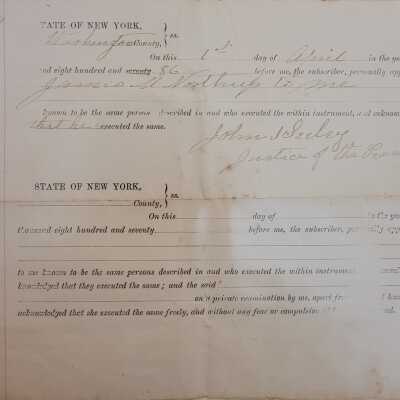 TATE OF NEW YORK, } ss.
Washington County,
On this 1st day of April in the yea
nd eight hundred and seventy 86 before me, the subscriber, personally appe
James Northup to me
known to be the same person described in and who executed the within instrument, and acknow
that he executed the same.
John
Justice of the Peace
STATE OF NEW YORK, } ss.
County,
On this day of in the yea
thousand eight hundred and seventy before me, the subscriber, personally app
to me known to be the same persons described in and who executed the within instrument
knowledged that they executed the same; and the said
on a private examination by me, apart from
acknowledged that she executed the same freely, and without any fear or compulsion